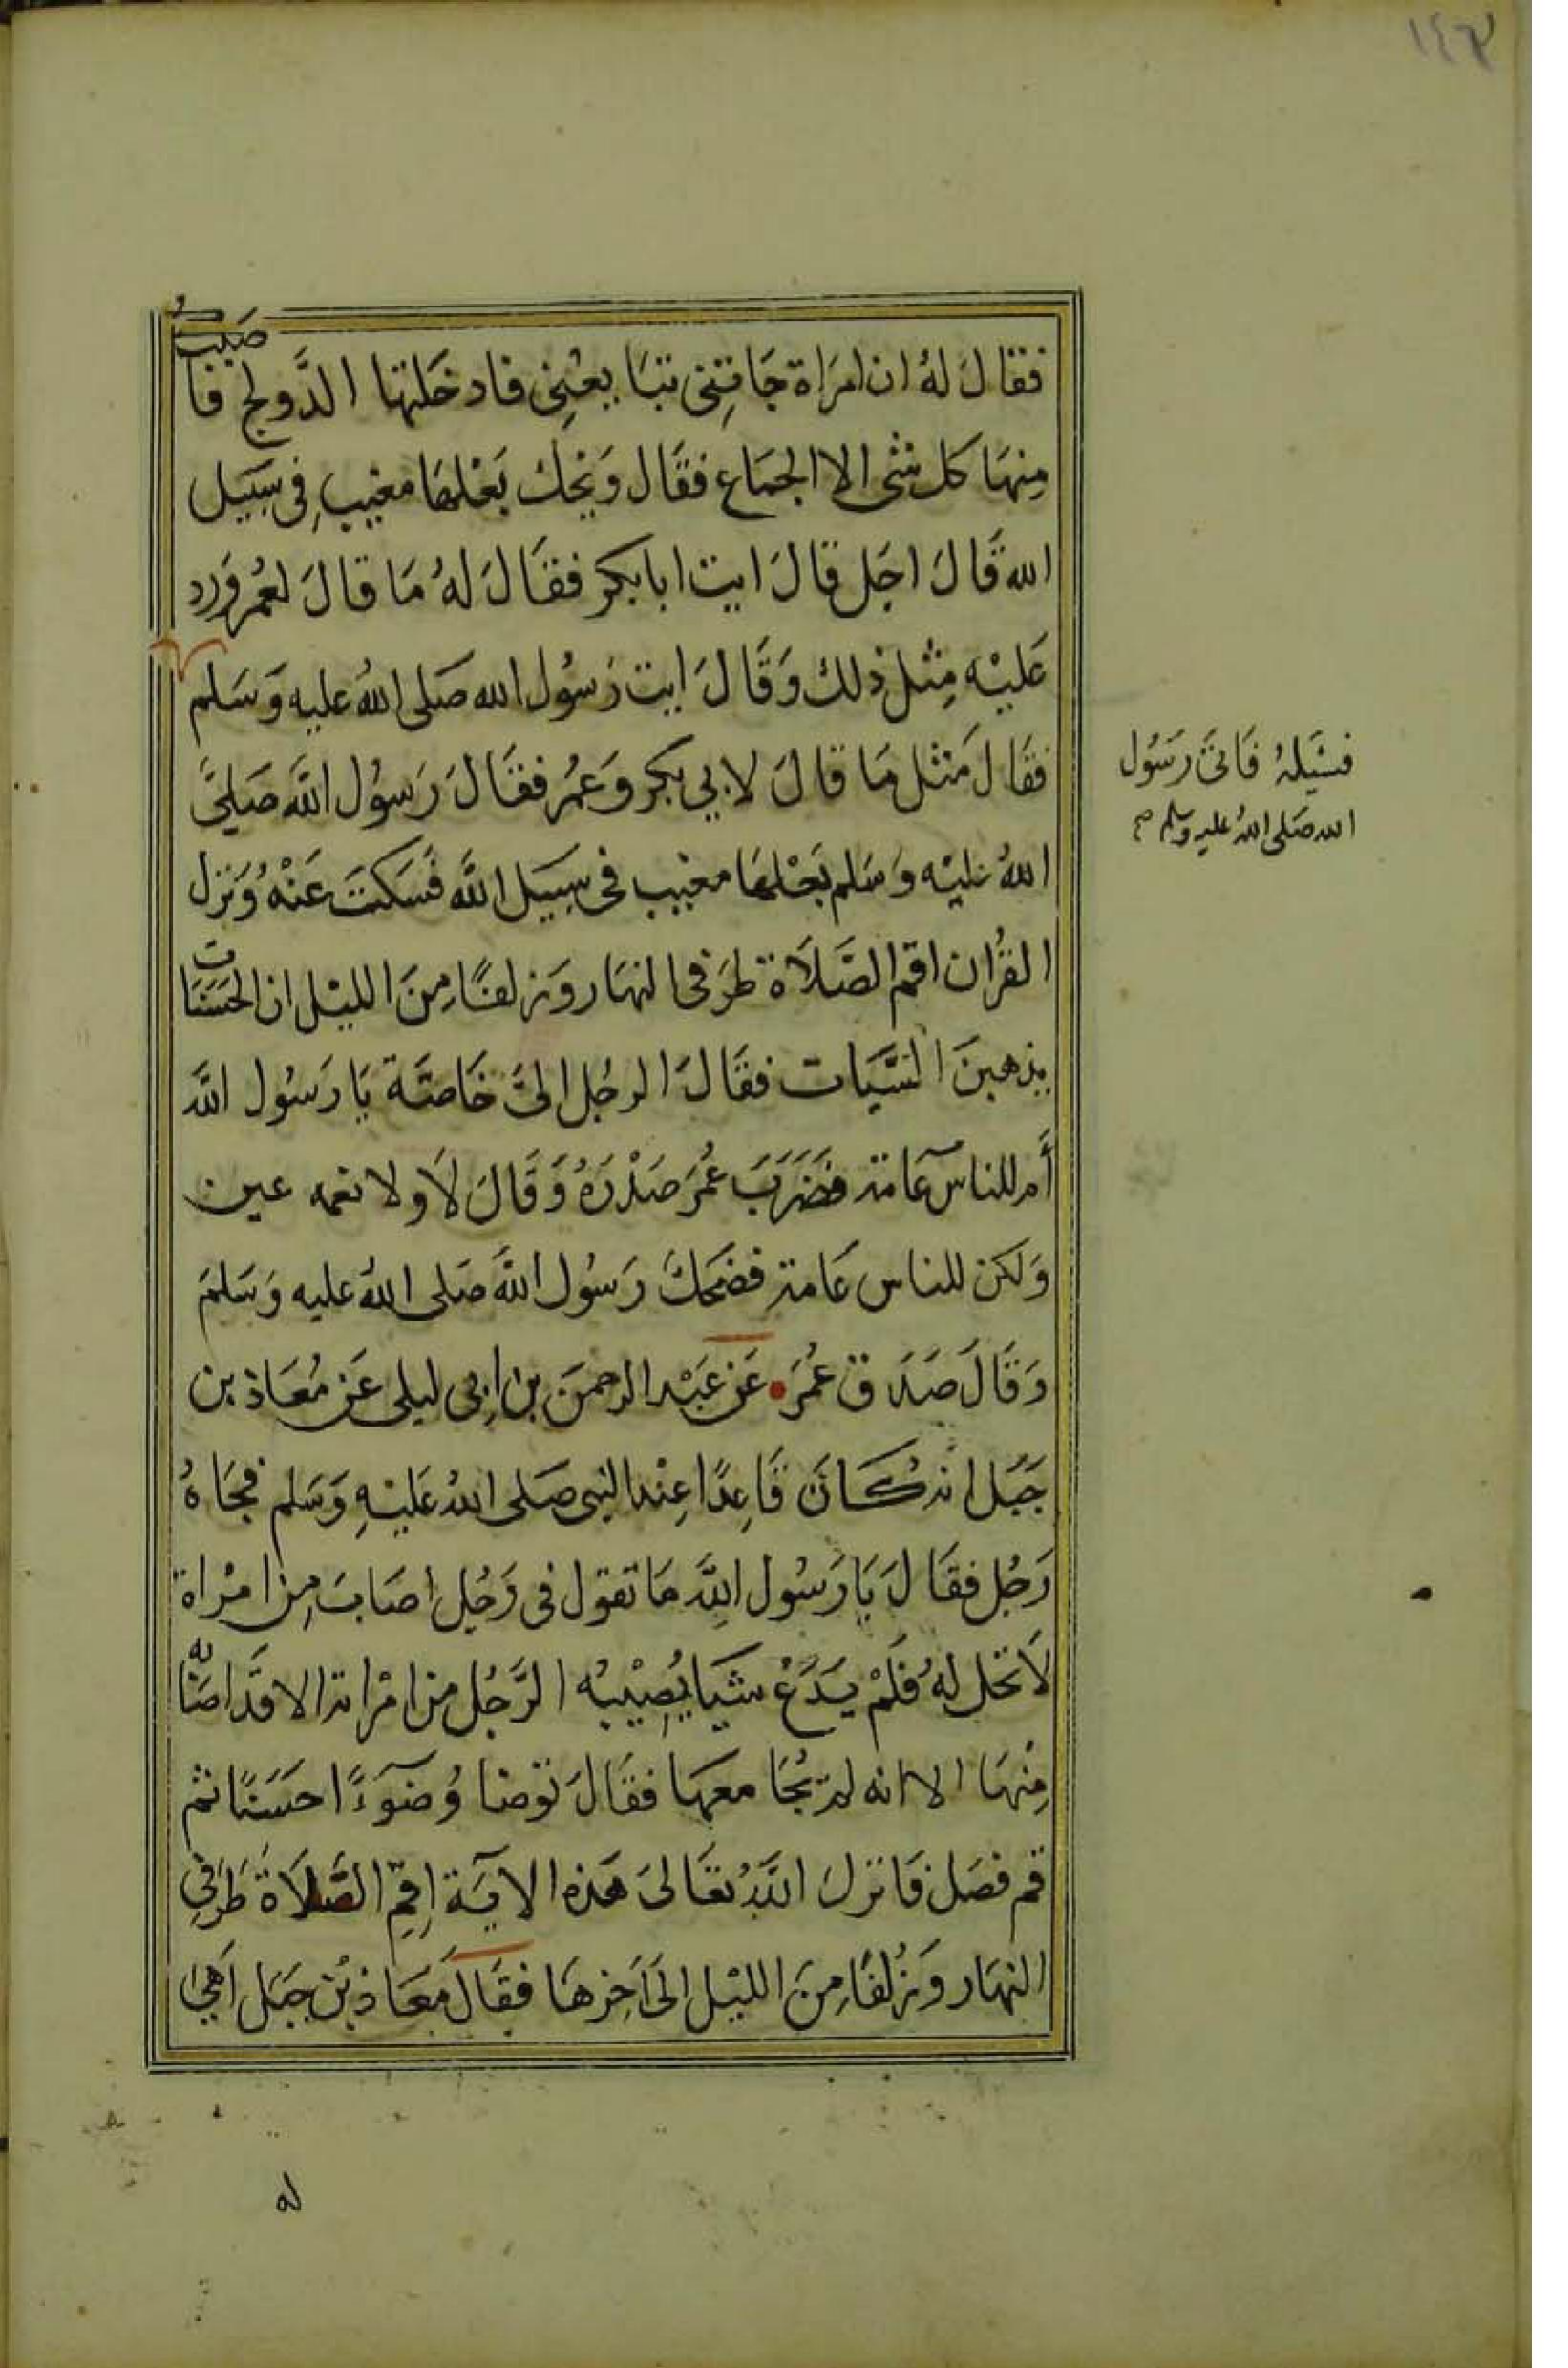 ١٤٣
فقال له ان امراة جاتني تبايعني فادخلتها الدولج فاصبت
منها كل شي الا الجماع فقال ويحك بعلها مغيب في سبيل
الله قال اجل قال ايت ابا بكر فقال له ما قال لعمر ورد
عليه مثل ذلك وقال ايت رسول الله صلى الله عليه وسلم
فسيله فاتى رسول
الله صلى الله عليه وسلم صح
فقال مثل ما قال لابي بكر وعمر فقال رسول الله صلى
الله عليه وسلم بعلها مغيب في سبيل الله فسكت عنه ونزل
القران اقم الصلاة طرفي النهار وزلفا من الليل ان الحسنات
يذهبن السيات فقال الرجل الي خاصة يا رسول الله
أم للناس عامة فضرب عمر صدره وقال لا ولا نعمه عين
ولكن للناس عامة فضحك رسول الله صلى الله عليه وسلم
وقال صدق عمر • عن عبد الرحمن بن ابي ليلى عن معاذ بن
جبل انه كان قاعدا عند النبي صلى الله عليه وسلم فجاه
رجل فقال يا رسول الله ما تقول في رجل اصاب من امراة
لا تحل له فلم يدع شيا يصيبه الرجل من امراته الا قد اصابه
منها الا انه لم يجامعها فقال توضا وضوءا حسنا ثم
قم فصل فانزل الله تعالى هذه الاية اقم الصلاة طرفي
النهار وزلفا من الليل الى اخرها فقال معاذ بن جبل اهي
له